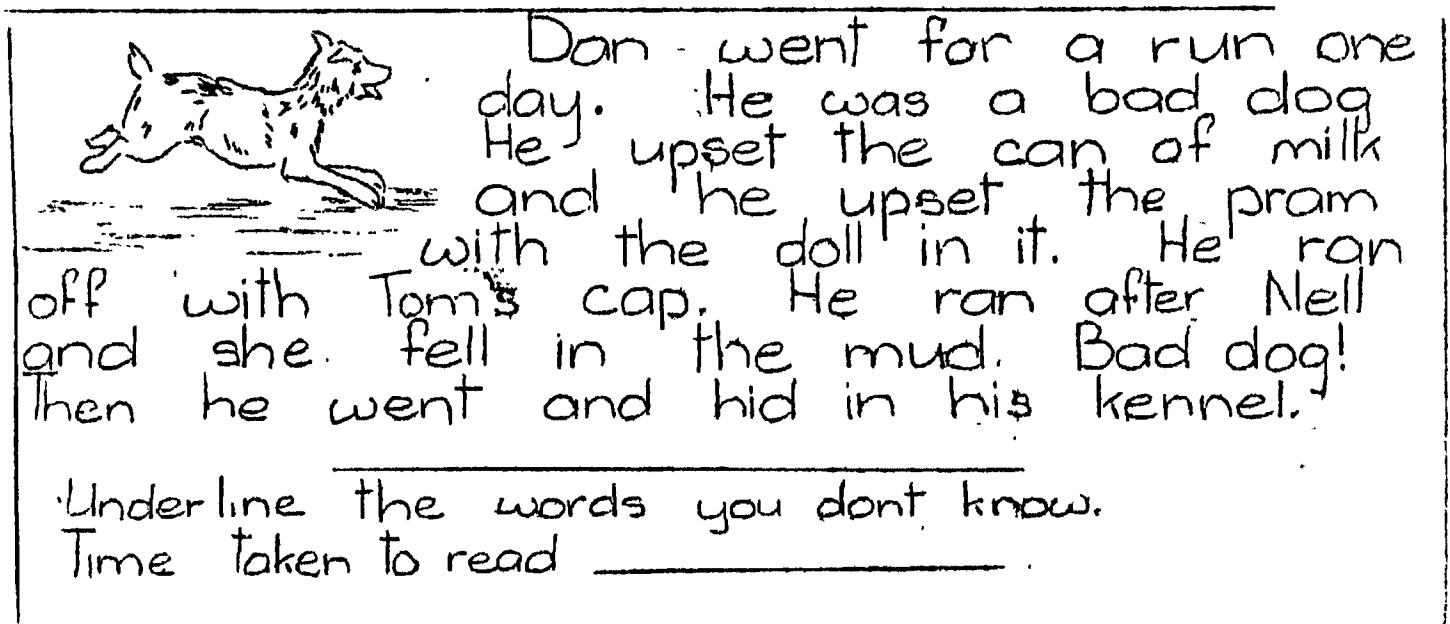 Dan went for a run one
day. He was a bad dog
He upset the can of milk
and he upset the pram
with the doll in it. He ran
off with Tom's cap. He ran after Nell
and she fell in the mud. Bad dog!
Then he went and hid in his kennel.
Underline the words you dont know.
Time taken to read